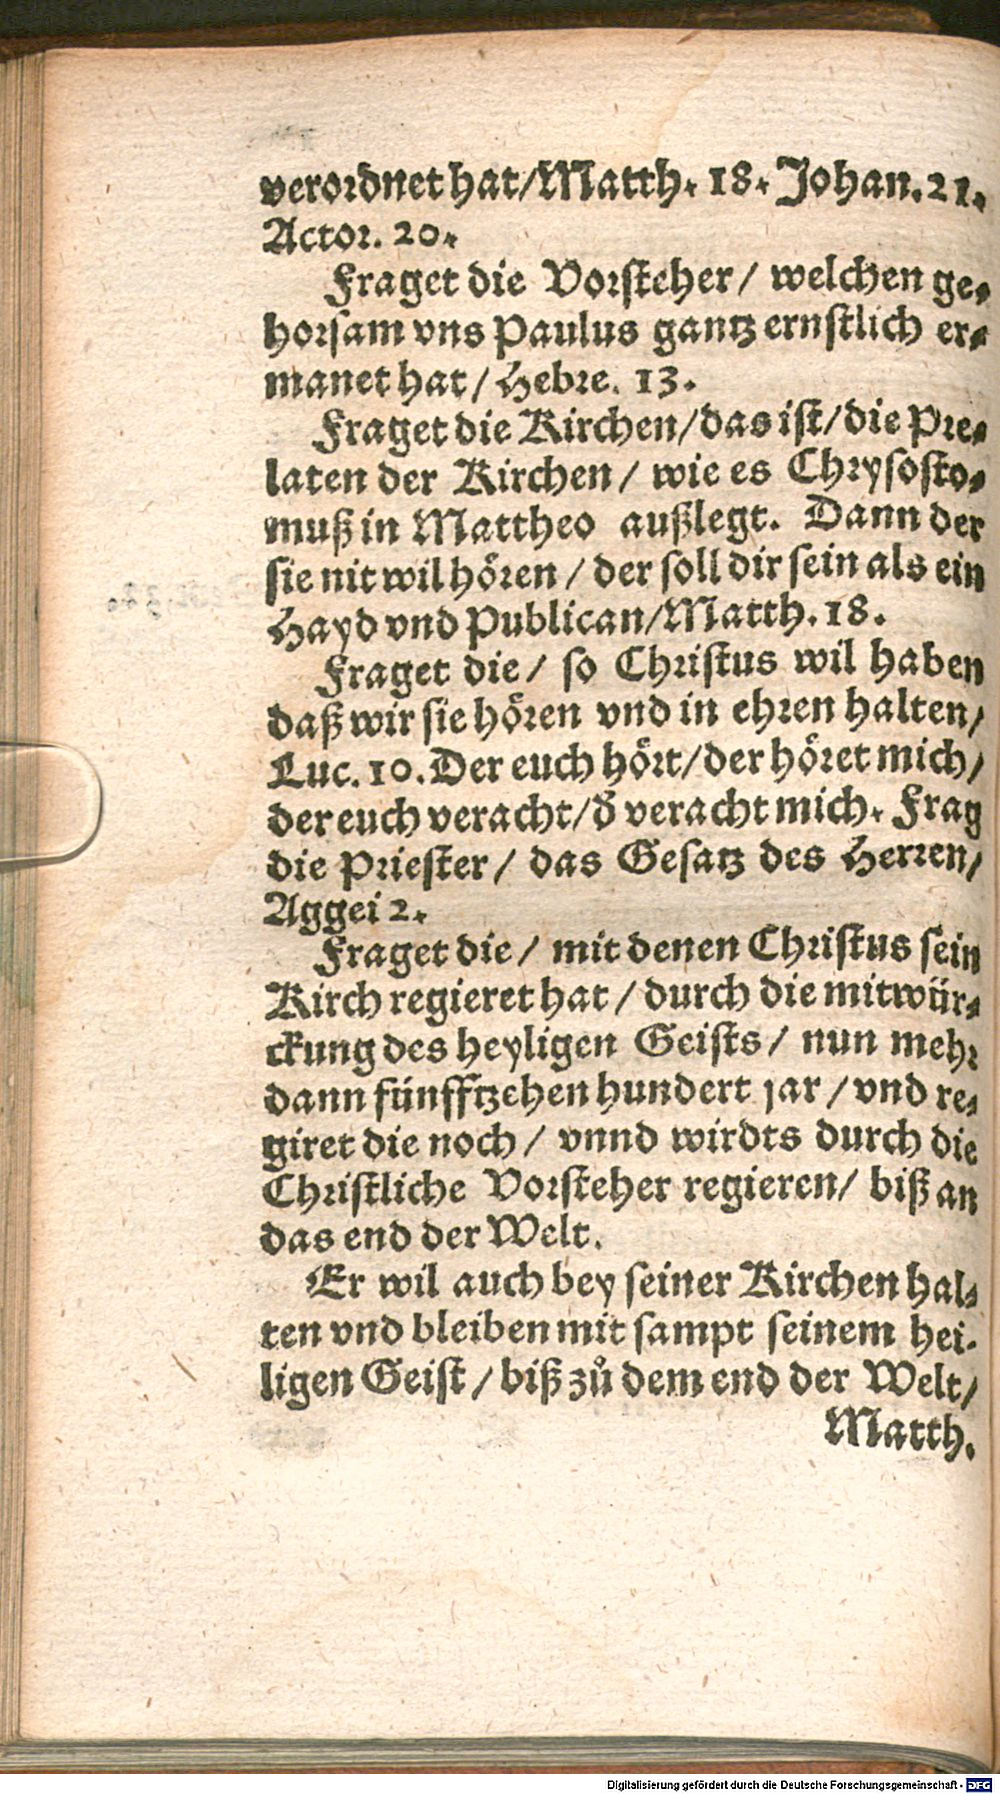 verordnet hat/Matth. 18. Johan. 21.
Actor. 20.
Fraget die Vorsteher/ welchen ge-
horsam vns Paulus gantz ernstlich er-
manet hat/ Hebre. 13.
Fraget die Kirchen/das ist/die Pre-
laten der Kirchen/ wie es Chrysosto-
muß in Mattheo außlegt. Dann der
sie nit wil hören/ der soll dir sein als ein
Hayd vnd Publican/Matth. 18.
Fraget die/ so Christus wil haben
daß wir sie hören vnd in ehren halten/
Luc. 10. Der euch hört/der höret mich/
der euch veracht/d̕ veracht mich. Frag
die Priester/ das Gesatz des Herren/
Aggei 2.
Fraget die/ mit denen Christus sein
Kirch regieret hat/ durch die mitwür-
ckung des heyligen Geists/ nun mehr
dann fünfftzehen hundert jar/vnd re-
giret die noch/ vnnd wirdts durch die
Christliche Vorsteher regieren/ biß an
das end der Welt.
Er wil auch bey seiner Kirchen hal-
ten vnd bleiben mit sampt seinem hei-
ligen Geist/ biß zů dem end der Welt/
Matth.
Digitalisierung gefördert durch die Deutsche Forschungsgemeinschaft - DFG